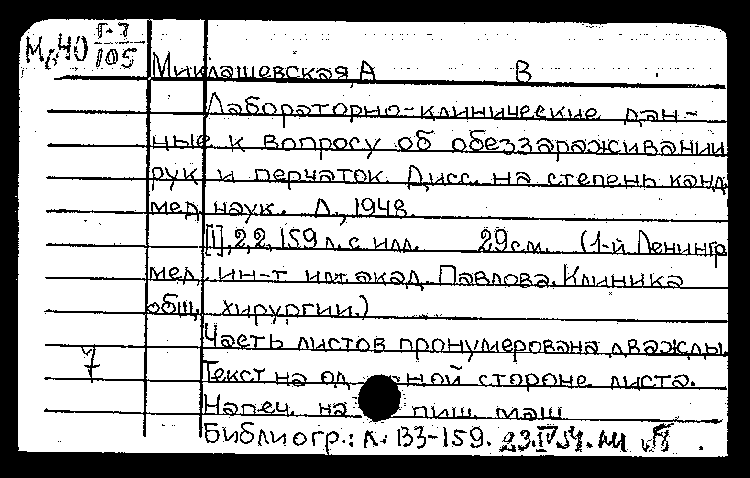 Мб40 Г-7
105
Миклашевская, А В
Лабораторно-клинические дан-
ные к вопросу об обеззараживании
рук и перчаток. Дисс. на степень канд
мед наук. Л., 1948.
[1], 2, 2, 159 л. с илл. 29 см. (1-й Ленингр
мед. ин-т им. акад. Павлова. Клиника
общ. хирургии.)
Часть листов пронумерована дважды.
Текст на од ной стороне листа.
7
Напеч. на пиш. маш
Библиогр.: л. 133-159. 23.IV 54.